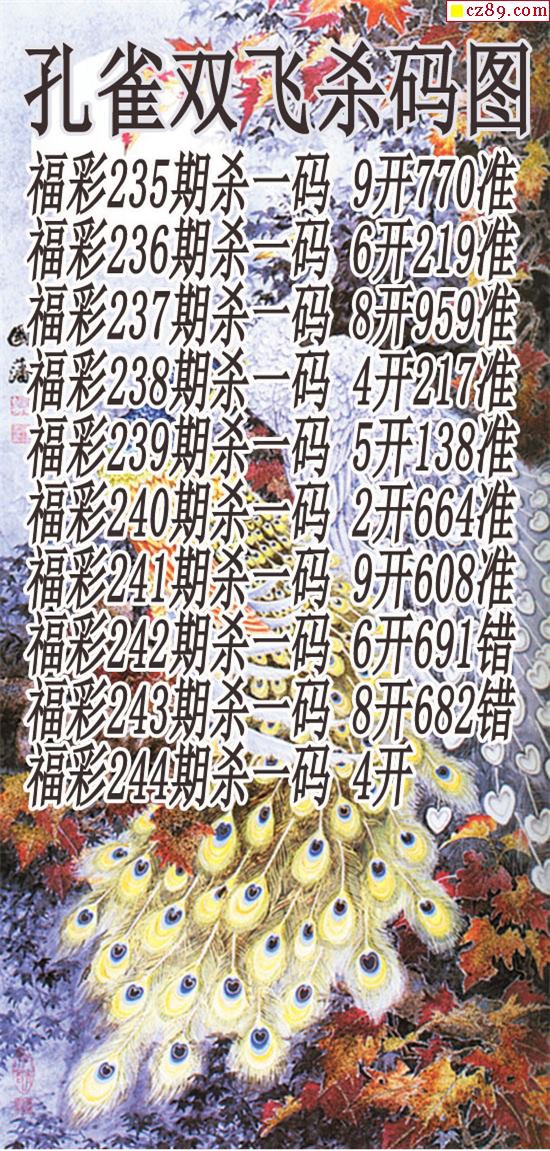 cz89.com
孔雀双飞杀码图
福彩235期杀一码 9开770准
福彩236期杀一码 6开219准
福彩237期杀一码 8开959准
福彩238期杀一码 4开217准
福彩239期杀一码 5开138准
福彩240期杀一码 2开664准
福彩241期杀一码 9开608准
福彩242期杀一码 6开691错
福彩243期杀一码 8开682错
福彩244期杀一码 4开